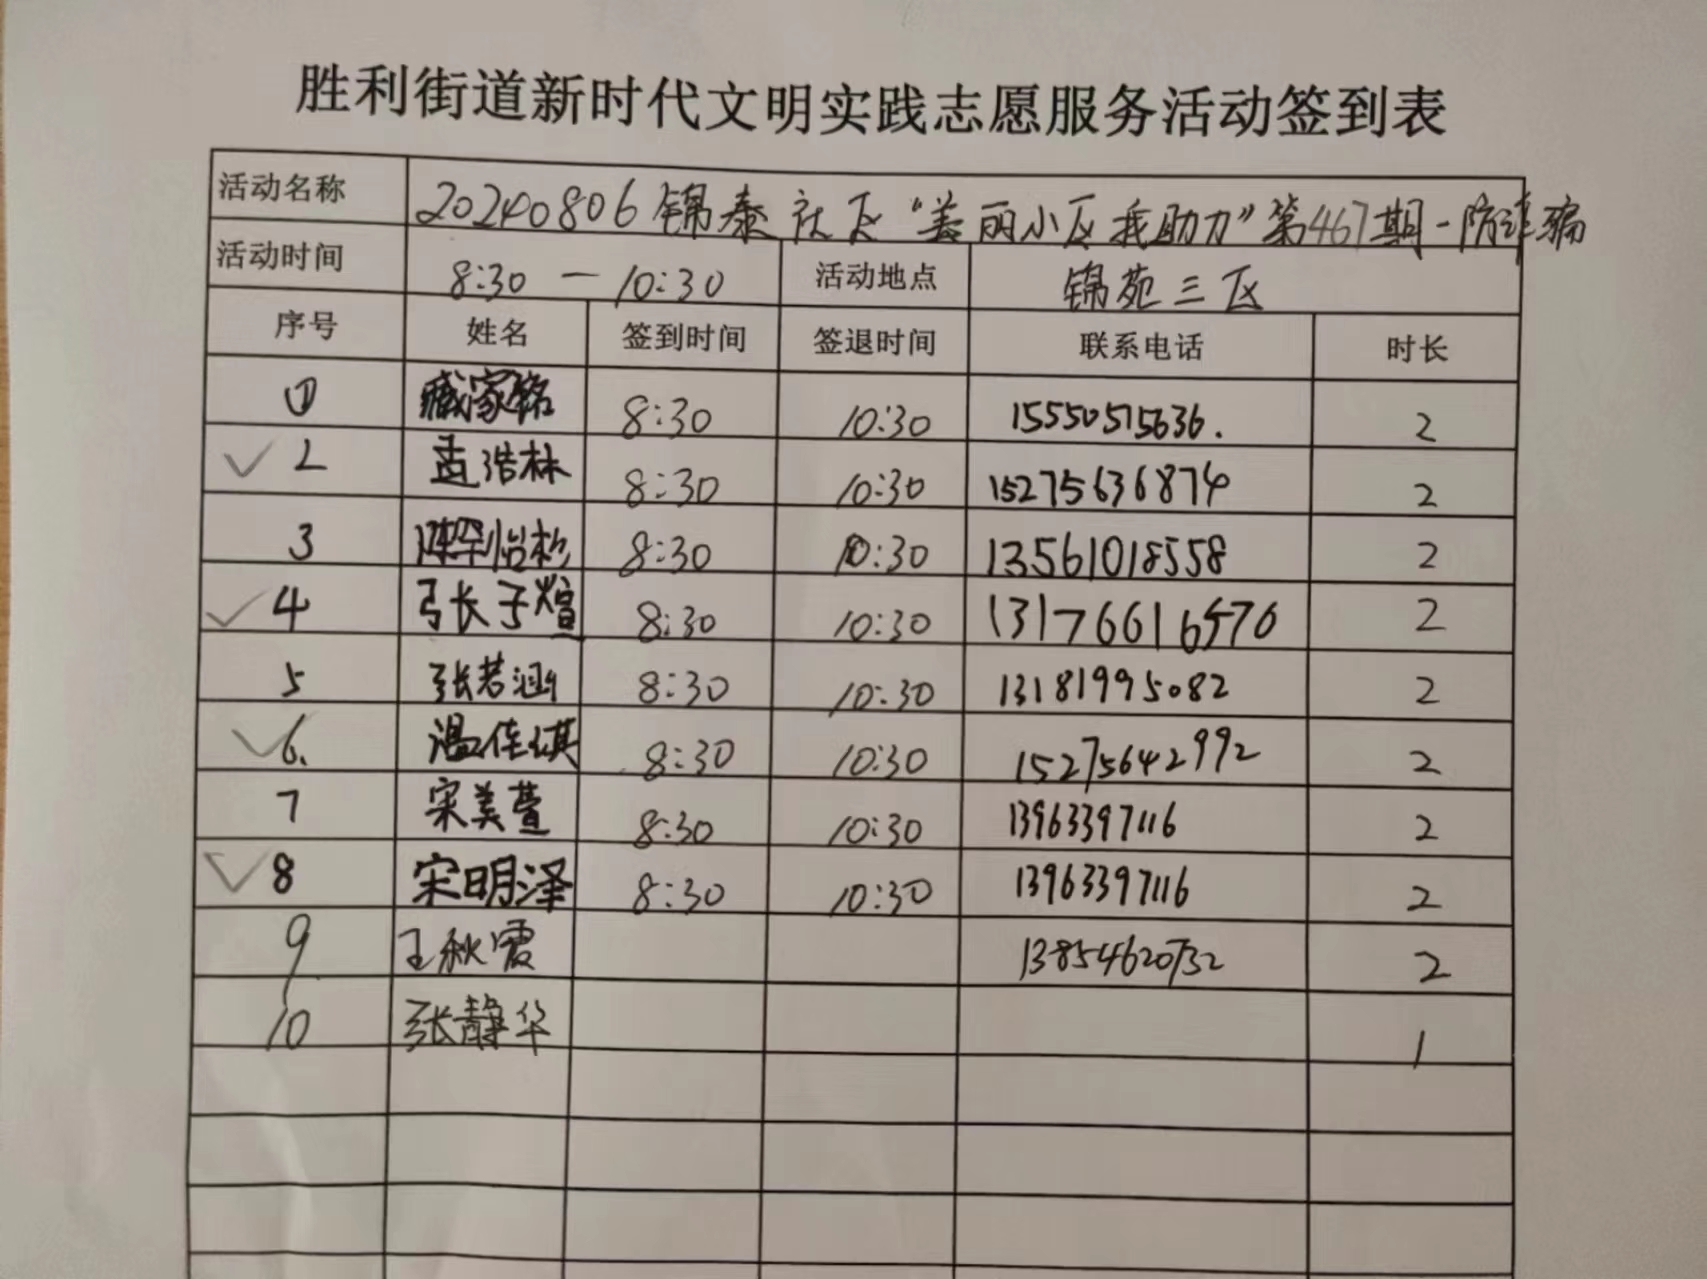 胜利街道新时代文明实践志愿服务活动签到表
活动名称 20240806锦泰社区“美丽小区我助力”第467期-防诈骗
活动时间 8:30 — 10:30 活动地点 锦苑三区
序号 姓名 签到时间 签退时间 联系电话 时长
① 臧家铭 8:30 10:30 15550515636. 2
✓ 2 孟浩林 8:30 10:30 15275636874 2
3 怡杉 8:30 10:30 13561018558 2
✓ 4 张子煊 8:30 10:30 13176616570 2
5 张若涵 8:30 10:30 13181995082 2
✓ 6. 温佳琪 8:30 10:30 15275642992 2
7 宋美萱 8:30 10:30 13963397116 2
✓ 8 宋明泽 8:30 10:30 13963397116 2
9 王秋霞 13854620732 2
10 张静华 1